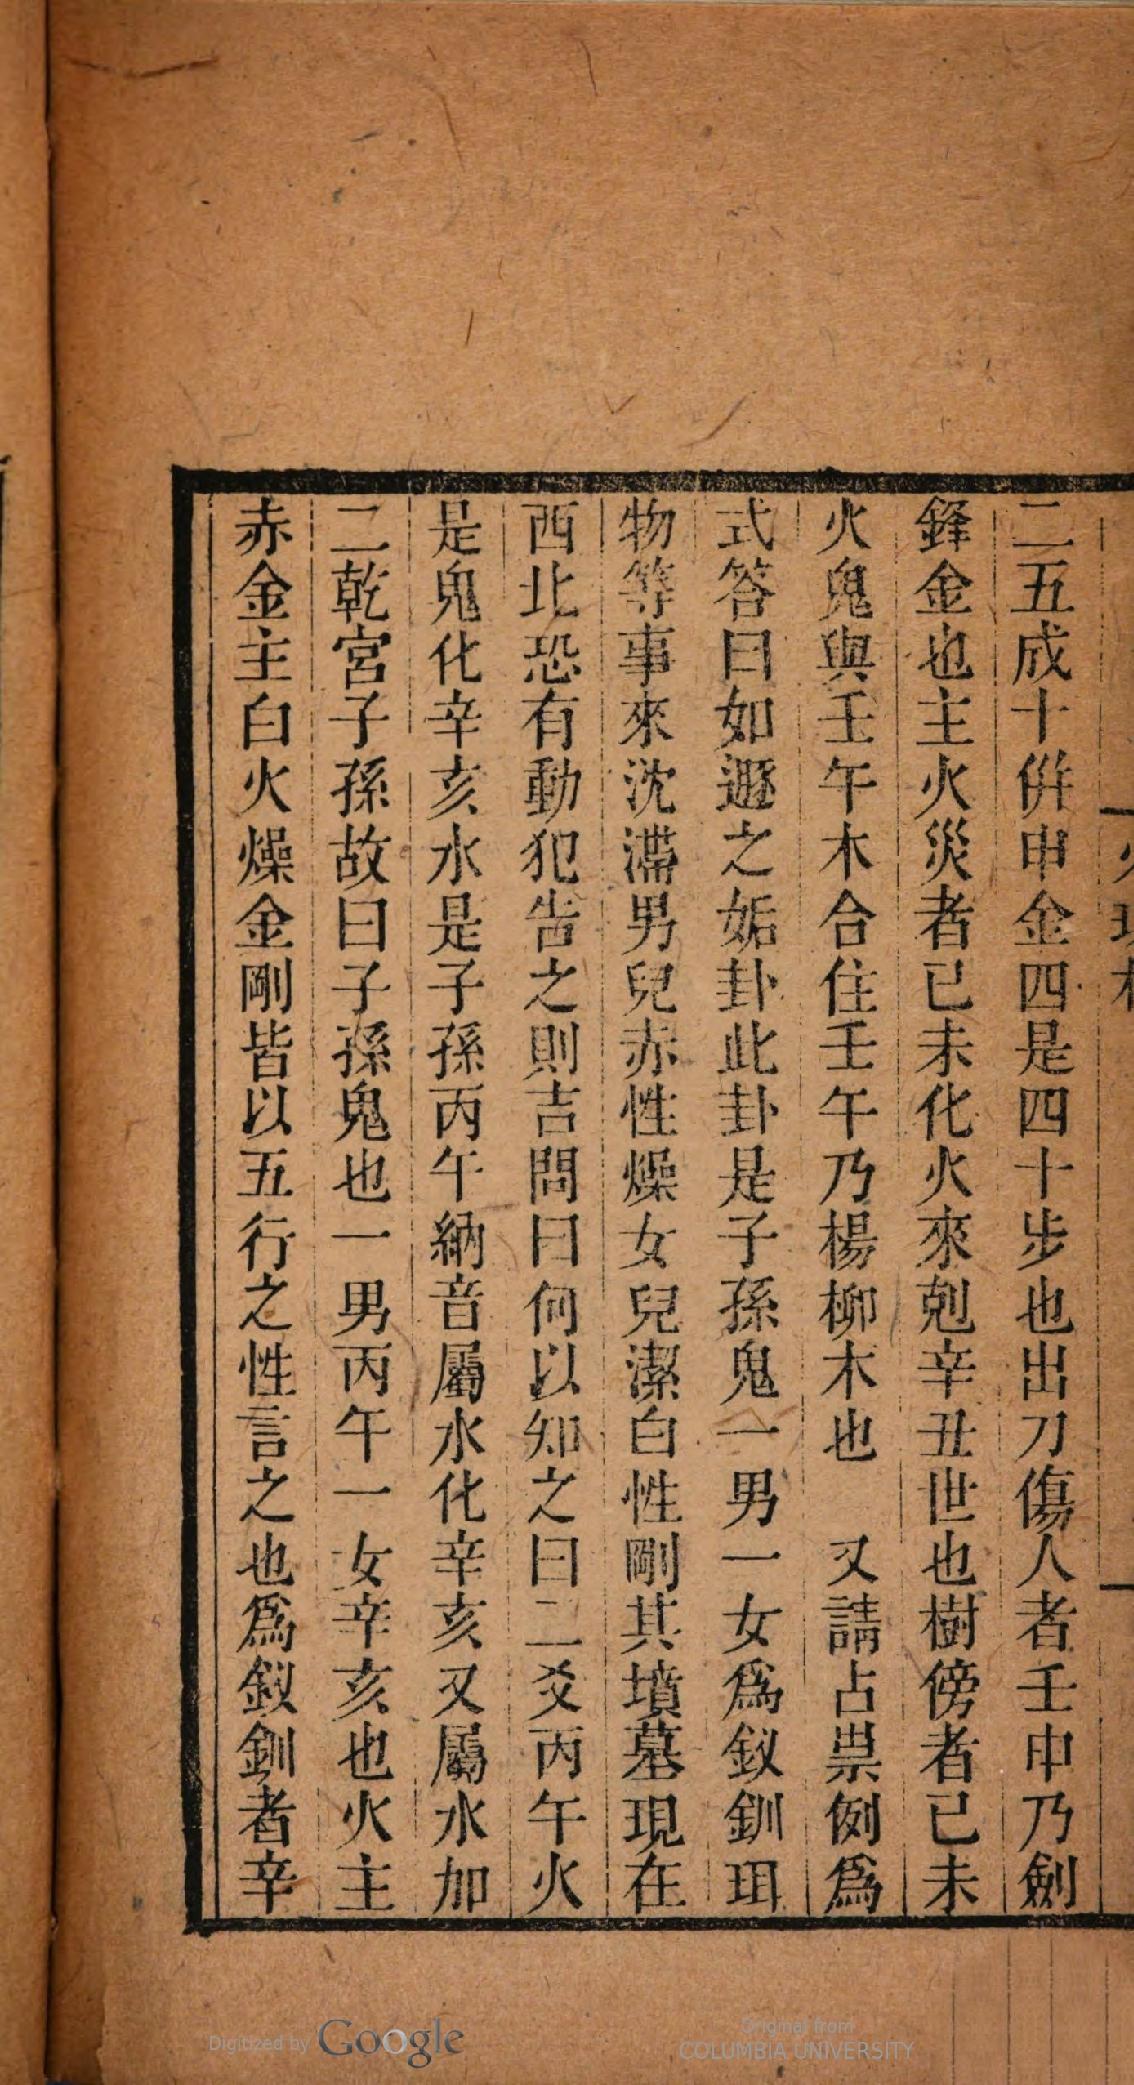 二五成十併申金四是四十步也出刀傷人者壬申乃劍
鋒金也主火災者已未化火來剋辛丑世也樹傍者已未
火鬼與壬午木合住壬午乃楊柳木也 又請占祟例爲
式答曰如遯之姤卦此卦是子孫鬼一男一女爲釵釧珥
物等事來沈滯男兒赤性燥女兒潔白性剛其墳墓現在
西北恐有動犯告之則吉問曰何以知之曰二爻丙午火
是鬼化辛亥水是子孫丙午納音屬水化辛亥又屬水加
二乾宮子孫故曰子孫鬼也一男丙午一女辛亥也火主
赤金主白火燥金剛皆以五行之性言之也爲釵釧者辛
Digitized by Google
Original from
COLUMBIA UNIVERSITY